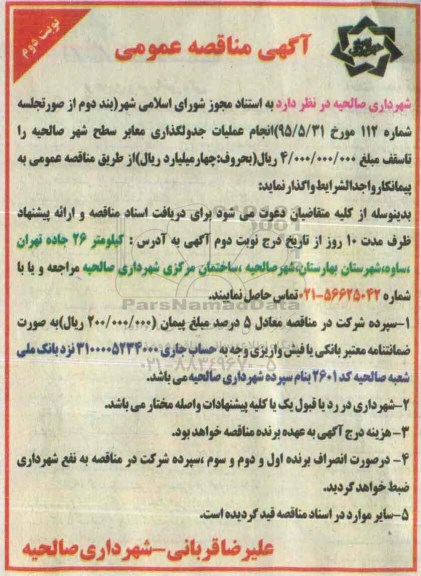 نوبت دوم
آگهی مناقصه عمومی
شهرداری صالحیه در نظر دارد به استناد مجوز شورای اسلامی شهر(بند دوم از صورتجلسه
شماره ۱۱۲ مورخ ۹۵/۵/۳۱)انجام عملیات جدولگذاری معابر سطح شهر صالحیه را
تاسقف مبلغ ۴/۰۰۰/۰۰۰/۰۰۰ ریال(بحروف:چهارمیلیارد ریال)از طریق مناقصه عمومی به
پیمانکارواجدالشرایط واگذار نماید:
بدینوسله از کلیه متقاضیان دعوت می شود برای دریافت اسناد مناقصه و ارائه پیشنهاد
ظرف مدت ۱۰ روز از تاریخ درج نوبت دوم آگهی به آدرس : کیلومتر ۲۶ جاده تهران
،ساوه،شهرستان بهارستان،شهرصالحیه ،ساختمان مرکزی شهرداری صالحیه مراجعه و یا با
شماره ۵۶۶۲۵۰۴۲-۰۲۱ تماس حاصل نمایند.
ParsNamadData
۱-سپرده شرکت در مناقصه معادل ۵ درصد مبلغ پیمان (۲۰۰/۰۰۰/۰۰۰ ریال)به صورت
ضمانتنامه معتبر بانکی یا فیش واریزی وجه به حساب جاری ۳۱۰۰۰۰۵۲۳۴۰۰۰ نزد بانک ملی
شعبه صالحیه کد ۲۶۰۱ بنام سپرده شهرداری صالحیه می باشد.
۰۲۱-۸۸۳۴۹۶۷۰-۵
۲-شهرداری در رد یا قبول یک یا کلیه پیشنهادات واصله مختار می باشد.
۳- هزینه درج آگهی به عهده برنده مناقصه خواهد بود.
۴- درصورت انصراف برنده اول و دوم و سوم ،سپرده شرکت در مناقصه به نفع شهرداری
ضبط خواهد گردید.
۵-سایر موارد در اسناد مناقصه قید گردیده است.
علیرضا قربانی-شهرداری صالحیه